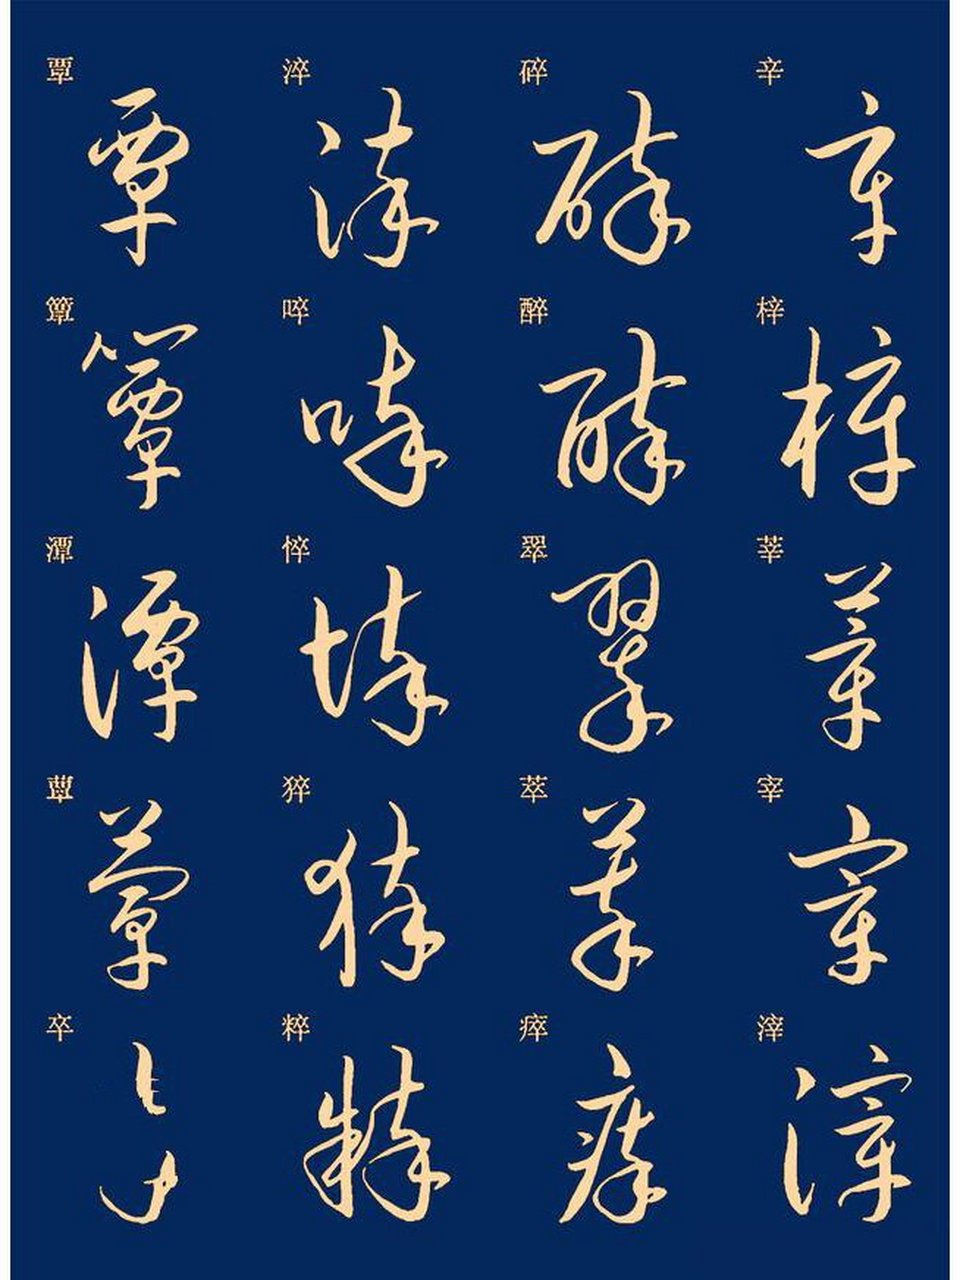 覃
覃
簟
簟
潭
潭
蕈
蕈
卒
卒
淬
淬
啐
啐
悴
悴
猝
猝
粹
粹
碎
碎
醉
醉
翠
翠
萃
萃
瘁
瘁
辛
辛
梓
梓
莘
莘
宰
宰
滓
滓